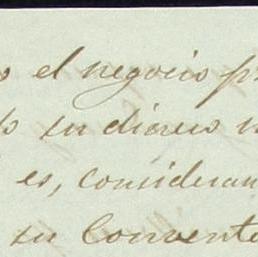 el negocio
su dinero
es, consideran
su Convento